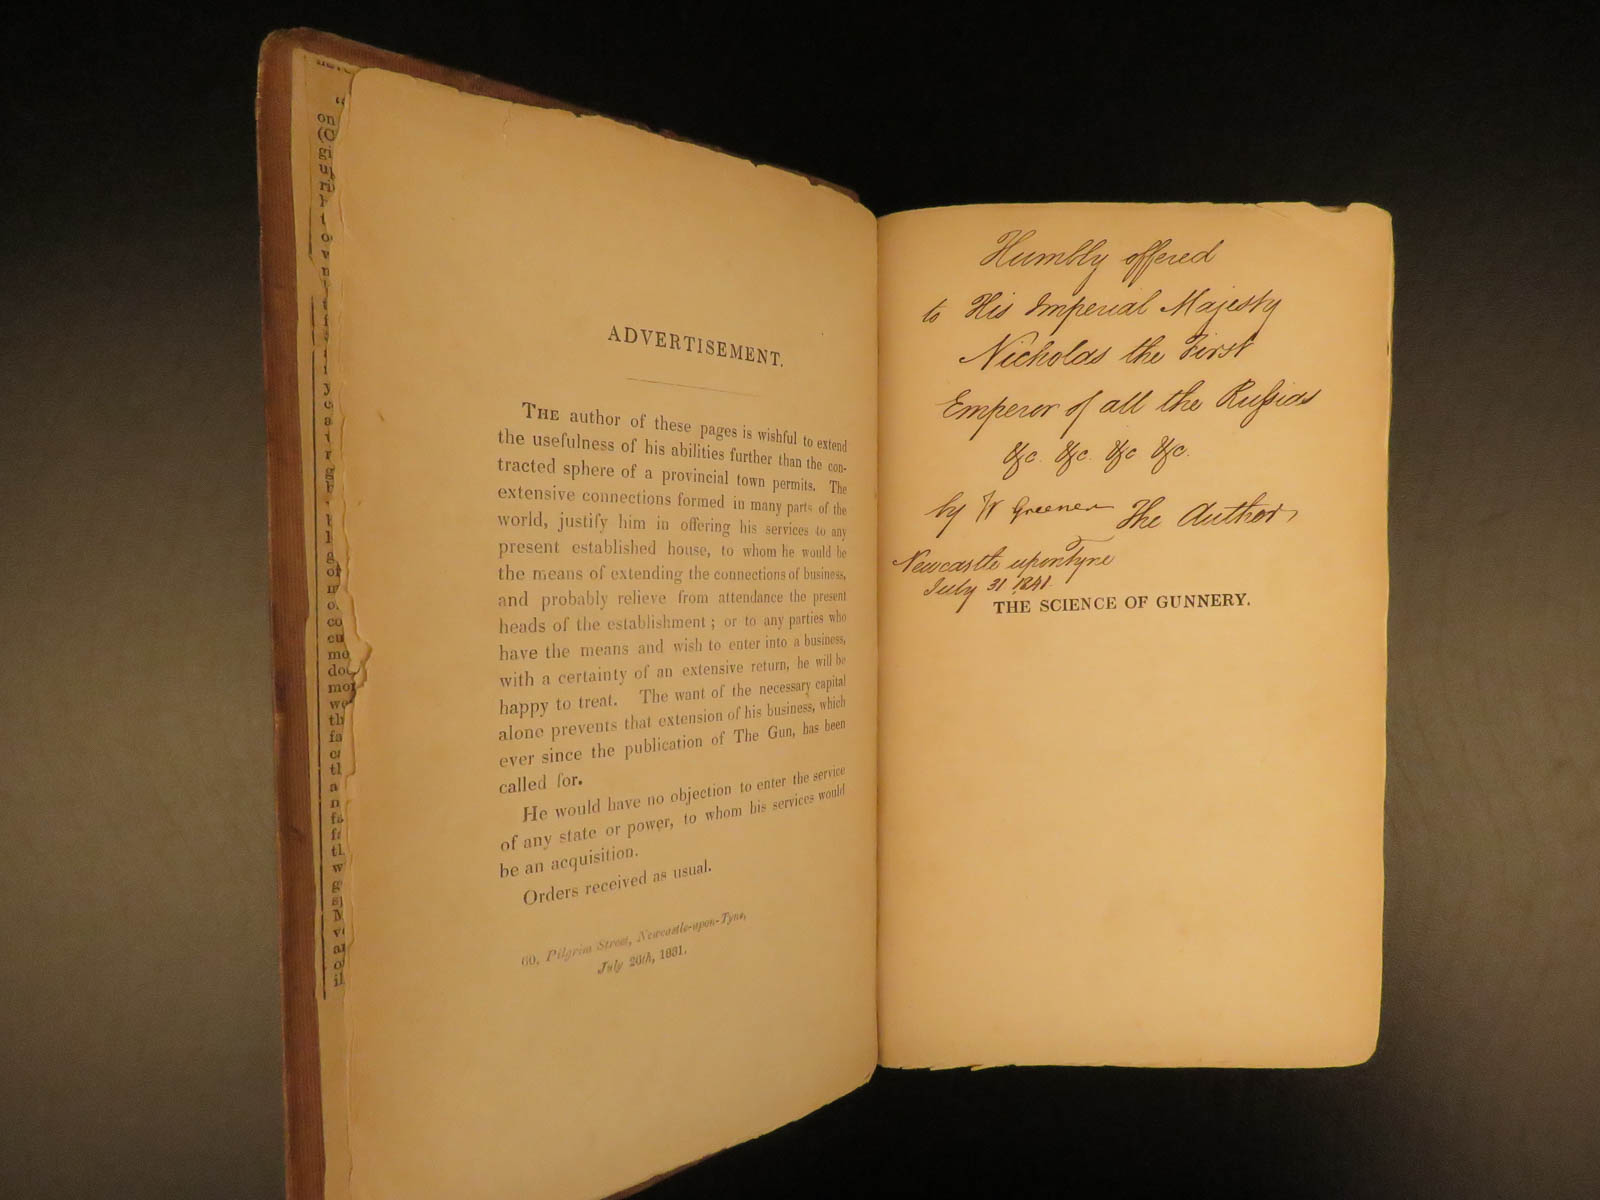 ADVERTISEMENT.
THE author of these pages is wishful to extend
the usefulness of his abilities further than the con-
tracted sphere of a provincial town permits. The
extensive connections formed in many parts of the
world, justify him in offering his services to any
present established house, to whom he would be
the means of extending the connections of business,
and probably relieve from attendance the present
heads of the establishment; or to any parties who
have the means and wish to enter into a business,
with a certainty of an extensive return, he will be
happy to treat. The want of the necessary capital
alone prevents that extension of his business, which
ever since the publication of The Gun, has been
called for.
He would have no objection to enter the service
of any state or power, to whom his services would
be an acquisition.
Orders received as usual.
60, Pilgrim Street, Newcastle-upon-Tyne,
July 26th,
Humbly offered
to His Imperial Majesty
Nicholas the First
Emperor of all the Russias
&c. &c. &c &c.
by W Greener The Author
Newcastle upon Tyne
July 31 1841.
THE SCIENCE OF GUNNERY.